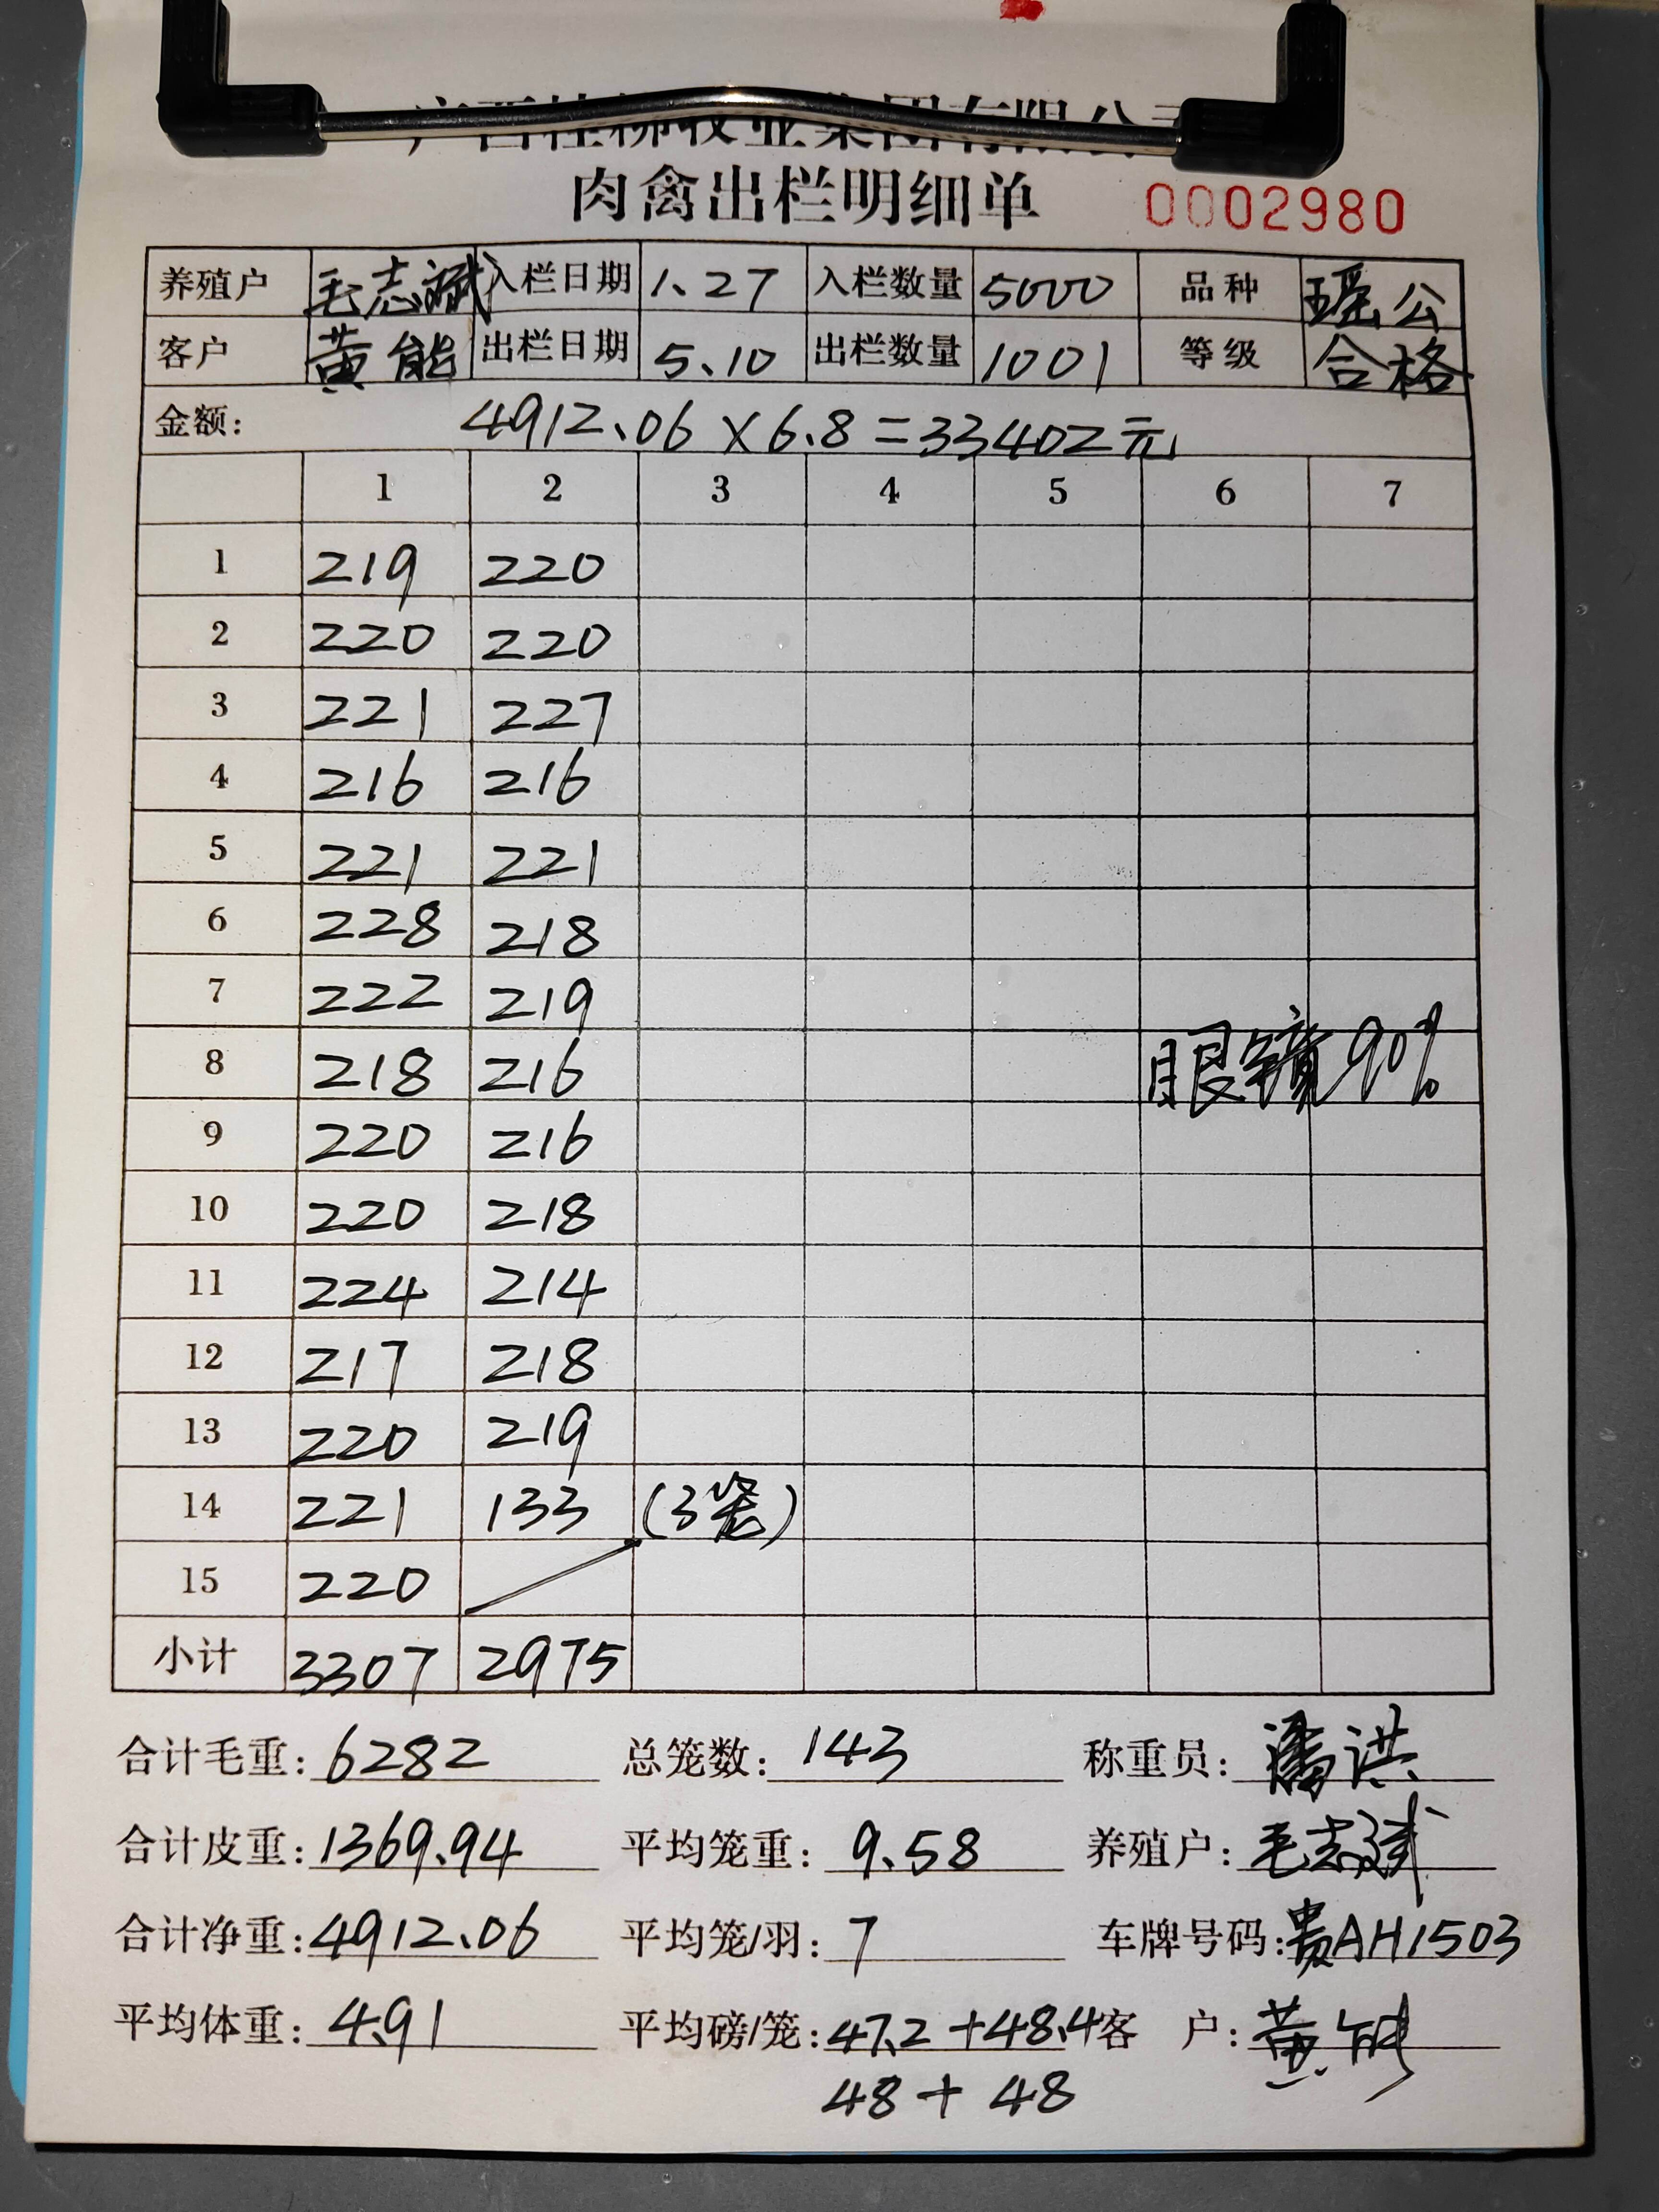 肉禽出栏明细单 0002980
养殖户 毛志斌 入栏日期 1.27 入栏数量 5000 品种 瑶公
客户 黄能 出栏日期 5.10 出栏数量 1001 等级 合格
金额: 4912.06×6.8=33402元
1 2 3 4 5 6 7
1 219 220
2 220 220
3 221 227
4 216 216
5 221 221
6 228 218
7 222 219
8 218 216 眼镜90%
9 220 216
10 220 218
11 224 214
12 217 218
13 220 219
14 221 133 (3笼)
15 220
小计 3307 2975
合计毛重: 6282 总笼数: 143 称重员: 潘洪
合计皮重: 1369.94 平均笼重: 9.58 养殖户: 毛志斌
合计净重: 4912.06 平均笼/羽: 7 车牌号码: 贵AH1503
平均体重: 4.91 平均磅/笼: 47.2+48.4 客 户: 黄能
48+48